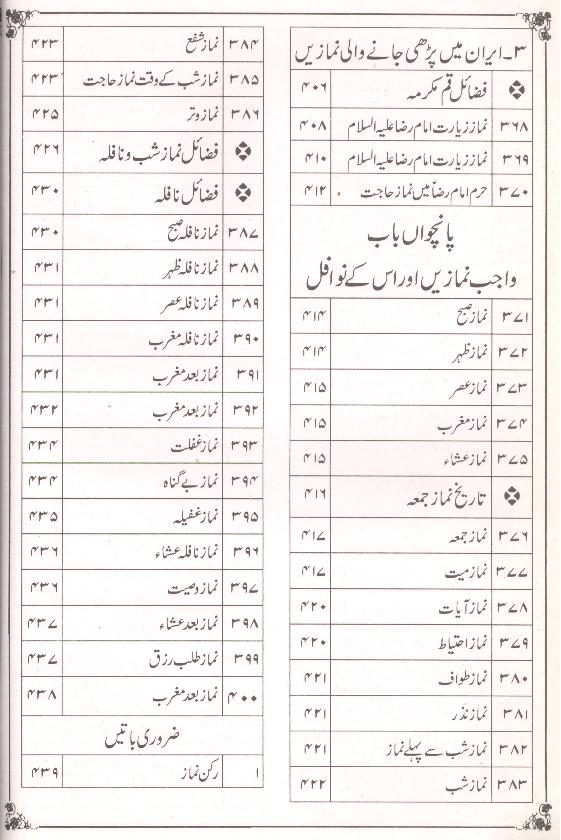 ۳۔ایران میں پڑھی جانے والی نمازیں
❖ فضائل قم مکرمہ ۴۰۶
۳۶۸ نماز زیارت امام رضا علیہ السلام ۴۰۸
۳۶۹ نماز زیارت امام رضا علیہ السلام ۴۱۰
۳۷۰ حرم امام رضاؑ میں نماز حاجت ۴۱۲
پانچواں باب
واجب نمازیں اور اس کے نوافل
۳۷۱ نماز صبح ۴۱۴
۳۷۲ نماز ظہر ۴۱۴
۳۷۳ نماز عصر ۴۱۵
۳۷۴ نماز مغرب ۴۱۵
۳۷۵ نماز عشاء ۴۱۵
❖ تاریخ نماز جمعہ ۴۱۶
۳۷۶ نماز جمعہ ۴۱۷
۳۷۷ نماز میت ۴۱۷
۳۷۸ نماز آیات ۴۲۰
۳۷۹ نماز احتیاط ۴۲۰
۳۸۰ نماز طواف ۴۲۱
۳۸۱ نماز نذر ۴۲۱
۳۸۲ نماز شب سے پہلے نماز ۴۲۱
۳۸۳ نماز شب ۴۲۲
۳۸۴ نماز شفع ۴۲۳
۳۸۵ نماز شب کے وقت نماز حاجت ۴۲۳
۳۸۶ نماز وتر ۴۲۵
❖ فضائل نماز شب و نافلہ ۴۲۶
❖ فضائل نافلہ ۴۳۰
۳۸۷ نماز نافلہ صبح ۴۳۰
۳۸۸ نماز نافلہ ظہر ۴۳۱
۳۸۹ نماز نافلہ عصر ۴۳۱
۳۹۰ نماز نافلہ مغرب ۴۳۱
۳۹۱ نماز بعد مغرب ۴۳۱
۳۹۲ نماز بعد مغرب ۴۳۲
۳۹۳ نماز غفلت ۴۳۴
۳۹۴ نماز بے گناہ ۴۳۴
۳۹۵ نماز غفیلہ ۴۳۵
۳۹۶ نماز نافلہ عشاء ۴۳۶
۳۹۷ نماز وصیت ۴۳۶
۳۹۸ نماز بعد عشاء ۴۳۷
۳۹۹ نماز طلب رزق ۴۳۷
۴۰۰ نماز بعد مغرب ۴۳۸
ضروری باتیں
۱ رکن نماز ۴۳۹